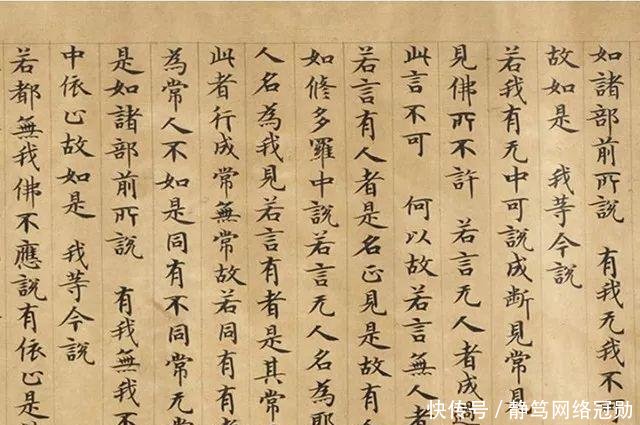 如諸部前所說 有我无我不可
故如是 我等今說
若我有无中可說成斷見常見
見佛所不許 若言无人者成
此言不可 何以故若言無人者
若言有人者是名正見是故有
如修多羅中說若言无人名為耶
人名為我見若言有者是其常
此者行成常無常故若同有有
為常人不如是同有不同常无常
是如諸部前所說 有我無我不
中依止故如是 我等今說
若都無我佛不應說有依止是
快传号／静笃网络冠勋